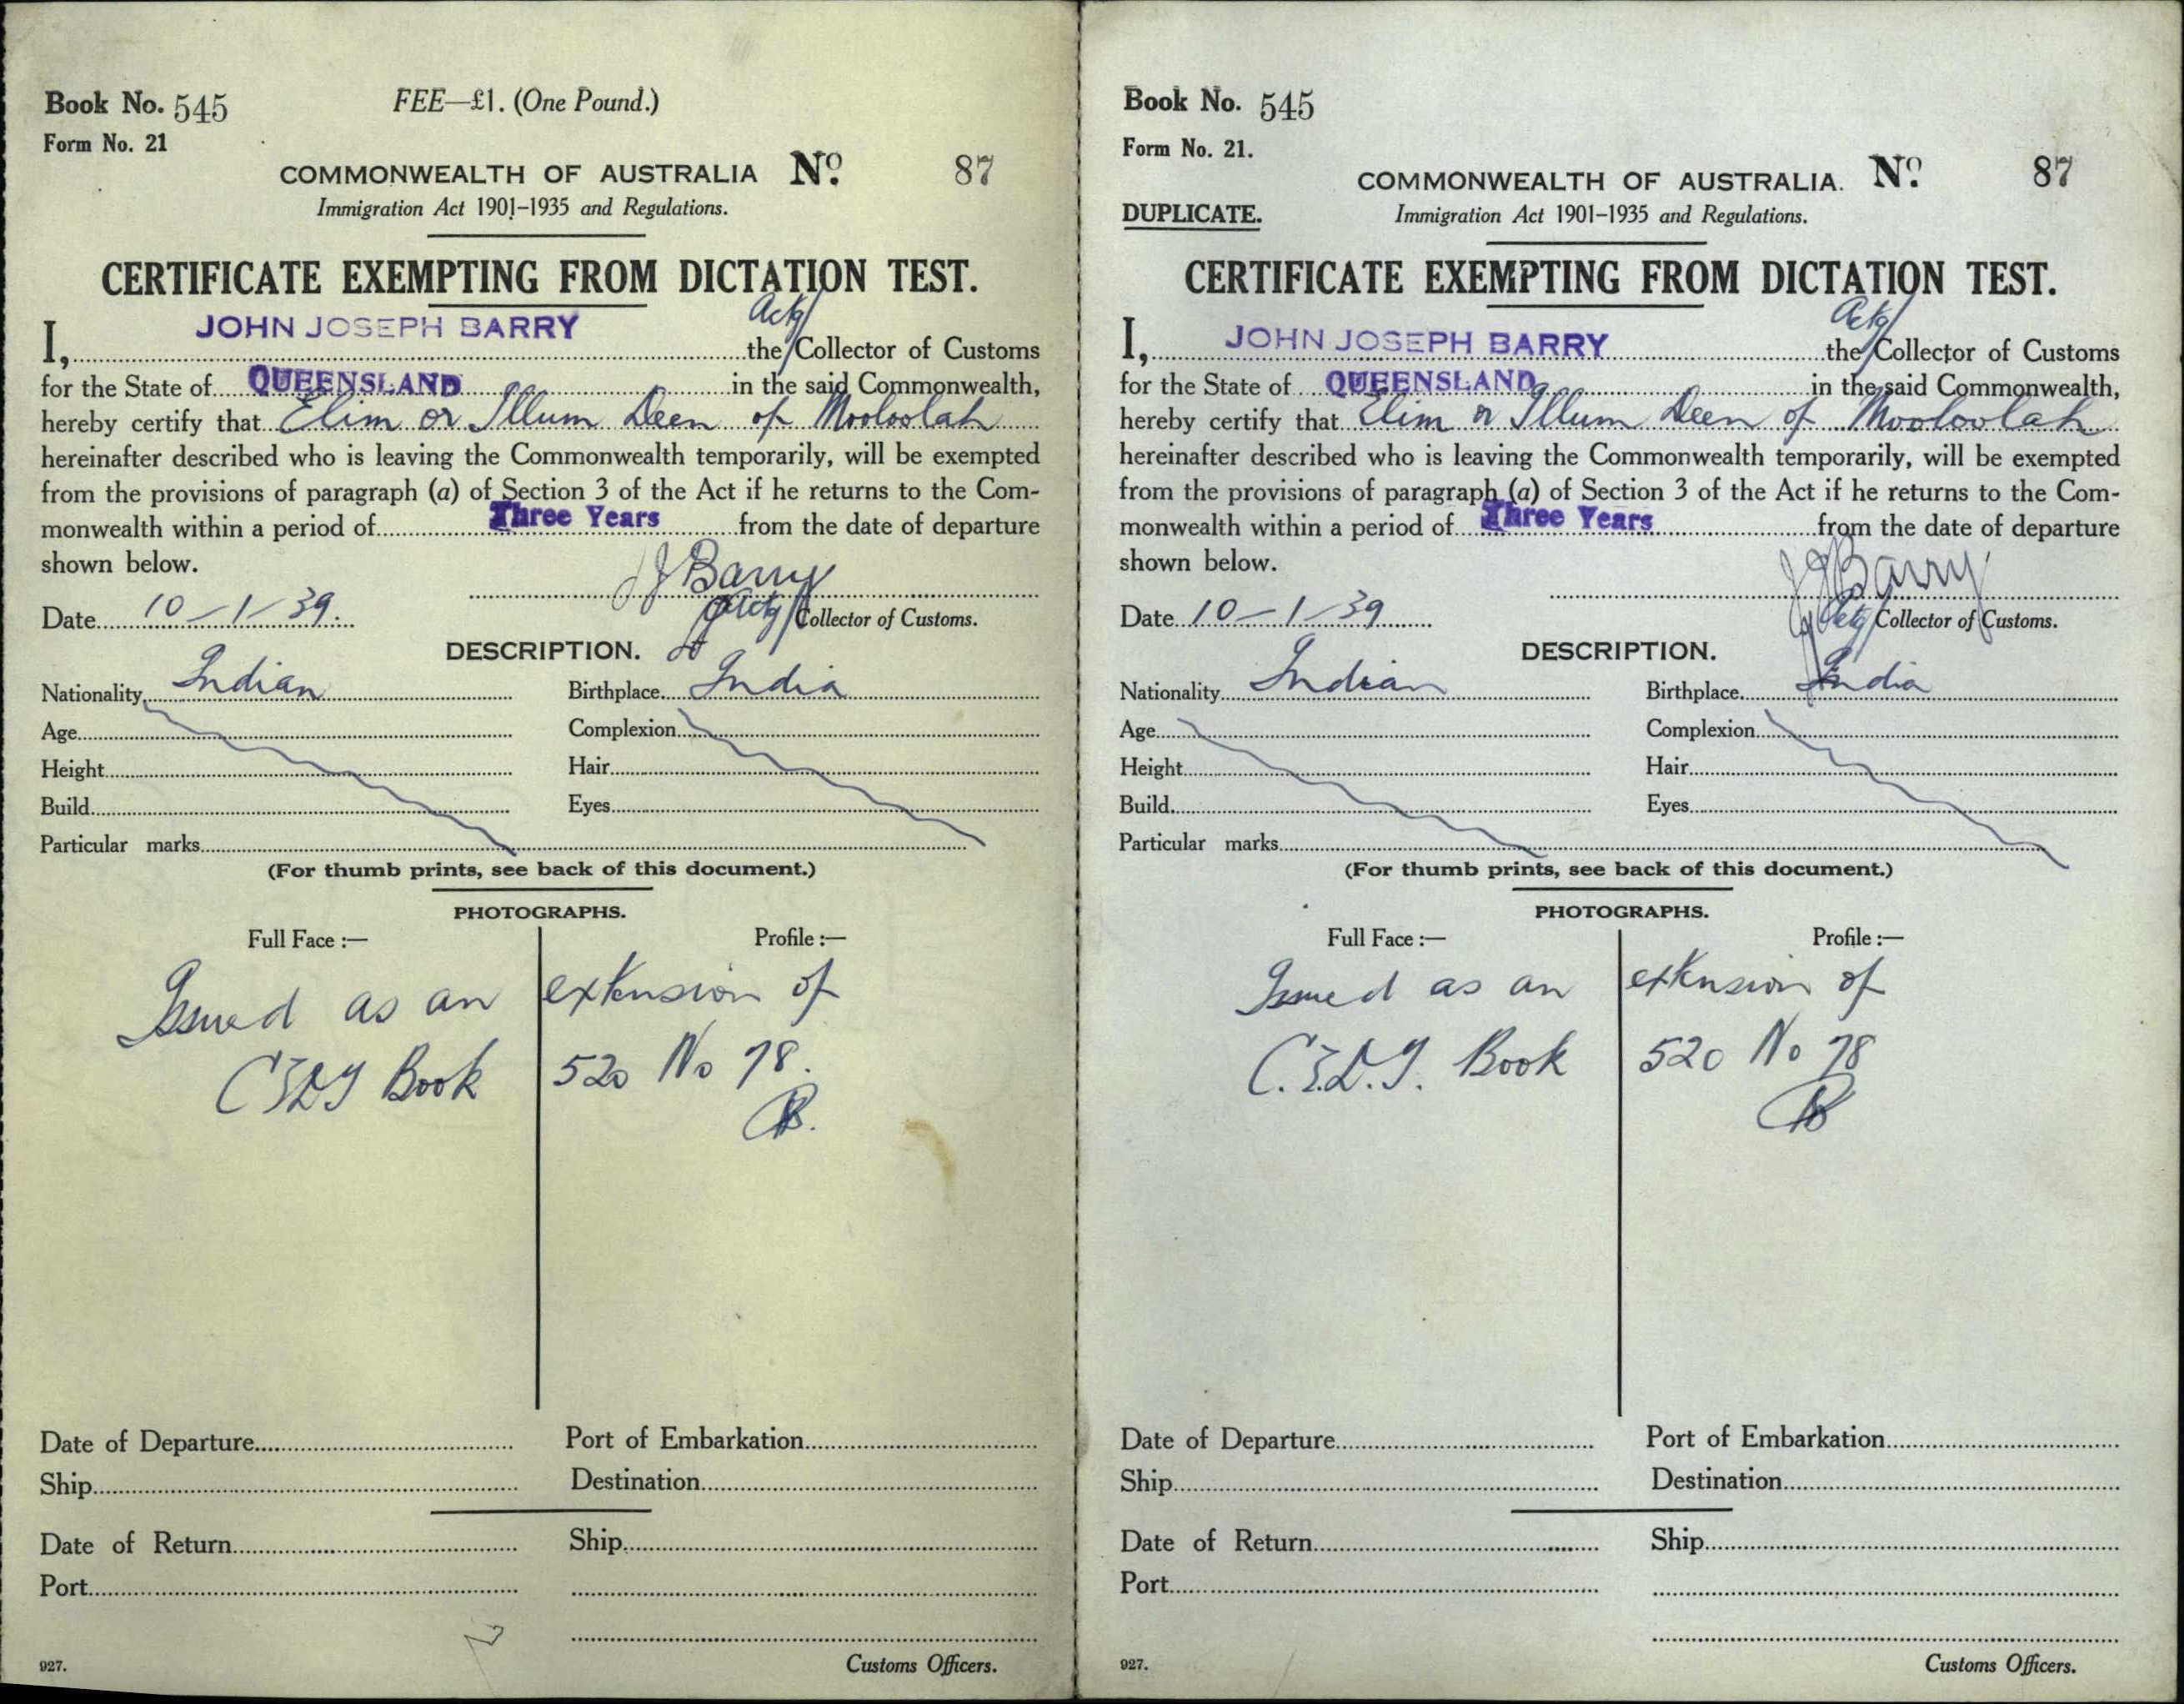 Book No. 545
FEE—£1. (One Pound.)
Form No. 21
COMMONWEALTH OF AUSTRALIA No. 87
Immigration Act 1901–1935 and Regulations.
CERTIFICATE EXEMPTING FROM DICTATION TEST.
Actg/
I, JOHN JOSEPH BARRY the Collector of Customs
for the State of QUEENSLAND in the said Commonwealth,
hereby certify that Elim or Illum Deen of Mooloolah
hereinafter described who is leaving the Commonwealth temporarily, will be exempted
from the provisions of paragraph (a) of Section 3 of the Act if he returns to the Com-
monwealth within a period of Three Years from the date of departure
shown below.
JJBarry
Date 10–1–39. Actg/ Collector of Customs.
DESCRIPTION.
Nationality Indian Birthplace India
Age Complexion
Height Hair
Build Eyes
Particular marks
(For thumb prints, see back of this document.)
PHOTOGRAPHS.
Full Face :— Profile :—
Issued as an extension of
CEDT Book 520 No 78.
B.
Date of Departure Port of Embarkation
Ship Destination
Date of Return Ship
Port
927. Customs Officers.
Book No. 545
Form No. 21.
COMMONWEALTH OF AUSTRALIA. No. 87
DUPLICATE. Immigration Act 1901–1935 and Regulations.
CERTIFICATE EXEMPTING FROM DICTATION TEST.
Actg/
I, JOHN JOSEPH BARRY the Collector of Customs
for the State of QUEENSLAND in the said Commonwealth,
hereby certify that Elim or Illum Deen of Mooloolah
hereinafter described who is leaving the Commonwealth temporarily, will be exempted
from the provisions of paragraph (a) of Section 3 of the Act if he returns to the Com-
monwealth within a period of Three Years from the date of departure
shown below.
JJBarry
Date 10–1–39 Actg/ Collector of Customs.
DESCRIPTION.
Nationality Indian Birthplace India
Age Complexion
Height Hair
Build Eyes
Particular marks
(For thumb prints, see back of this document.)
PHOTOGRAPHS.
Full Face :— Profile :—
Issued as an extension of
C.E.D.T. Book 520 No 78
B
Date of Departure Port of Embarkation
Ship Destination
Date of Return Ship
Port
927. Customs Officers.